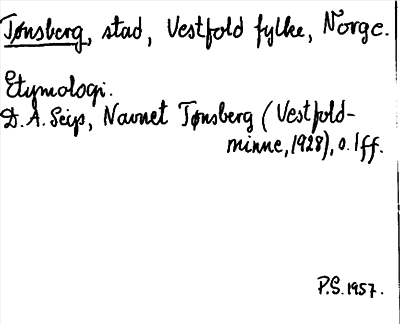 Tønsberg, stad, Vestfold fylke, Norge.
Etymologi.
D. A. Seip, Navnet Tønsberg (Vestfold-
minne, 1928), s. 1 ff.
P.S. 1957.